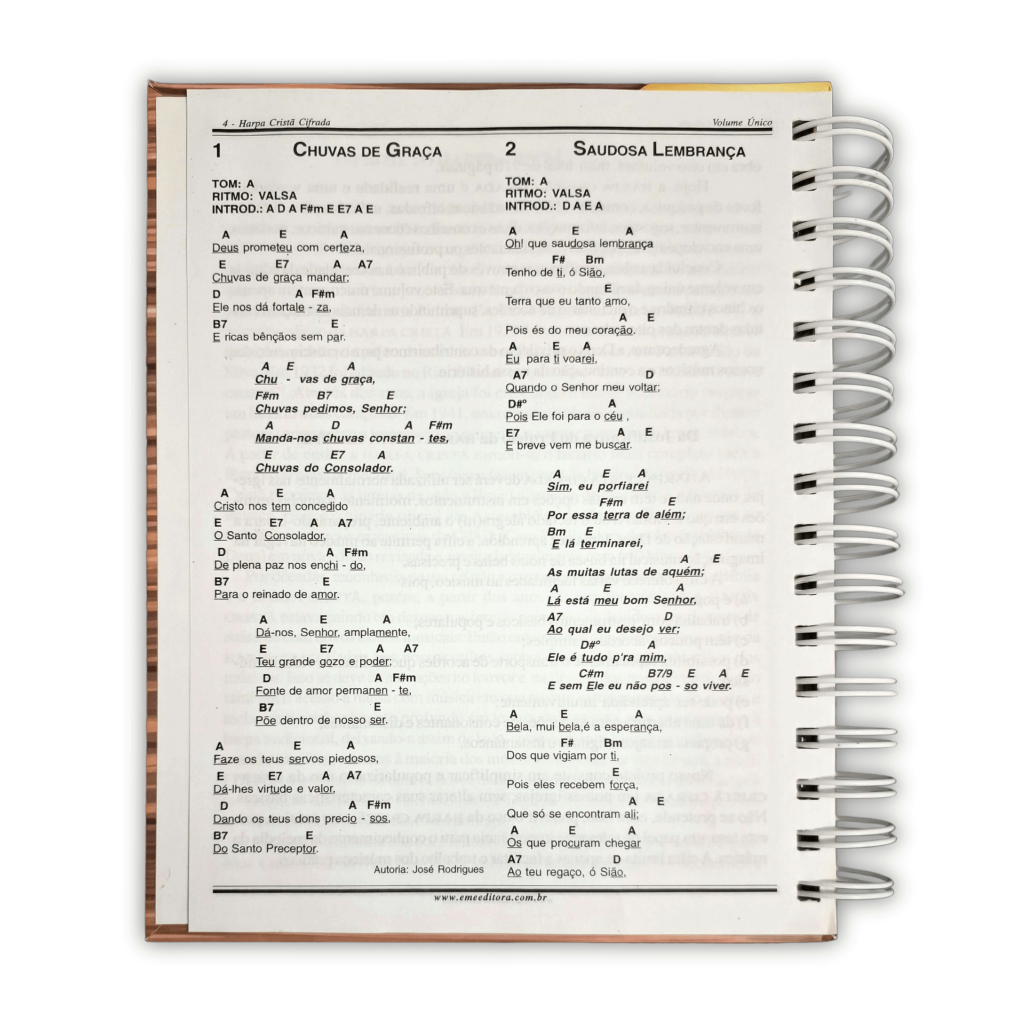 4 - Harpa Cristã Cifrada
Volume Único
1 CHUVAS DE GRAÇA
TOM: A
RITMO: VALSA
INTROD.: A D A F#m E E7 A E
A E A
Deus prometeu com certeza,
E E7 A A7
Chuvas de graça mandar;
D A F#m
Ele nos dá fortale - za,
B7 E
E ricas bênçãos sem par.
A E A
Chu - vas de graça,
F#m B7 E
Chuvas pedimos, Senhor;
A D A F#m
Manda-nos chuvas constan - tes,
E E7 A
Chuvas do Consolador.
A E A
Cristo nos tem concedido
E E7 A A7
O Santo Consolador,
D A F#m
De plena paz nos enchi - do,
B7 E
Para o reinado de amor.
A E A
Dá-nos, Senhor, amplamente,
E E7 A A7
Teu grande gozo e poder;
D A F#m
Fonte de amor permanen - te,
B7 E
Põe dentro de nosso ser.
A E A
Faze os teus servos piedosos,
E E7 A A7
Dá-lhes virtude e valor,
D A F#m
Dando os teus dons precio - sos,
B7 E
Do Santo Preceptor.
Autoria: José Rodrigues
2 SAUDOSA LEMBRANÇA
TOM: A
RITMO: VALSA
INTROD.: D A E A
A E A
Oh! que saudosa lembrança
F# Bm
Tenho de ti, ó Sião,
E
Terra que eu tanto amo,
A E
Pois és do meu coração.
A E A
Eu para ti voarei,
A7 D
Quando o Senhor meu voltar;
D#º A
Pois Ele foi para o céu ,
E7 A E
E breve vem me buscar.
A E A
Sim, eu porfiarei
F#m
Por essa terra de além;
Bm E
E lá terminarei,
A E
As muitas lutas de aquém;
A E A
Lá está meu bom Senhor,
A7 D
Ao qual eu desejo ver;
D#º A
Ele é tudo p'ra mim,
C#m B7/9 E A E
E sem Ele eu não pos - so viver.
A E A
Bela, mui bela,é a esperança,
F# Bm
Dos que vigiam por ti,
E
Pois eles recebem força,
A E
Que só se encontram ali;
A E A
Os que procuram chegar
A7 D
Ao teu regaço, ó Sião,
www.emeeditora.com.br